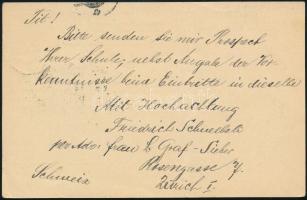 Tit!
Bitte senden Sie mir Prospect
Ihrer Schule, nebst Angabe der Vor
kenntnisse beim Eintritte in dieselbe
Mit Hochachtung
Friedrich
per Adr. Frau L. Graf-
Rosengasse 7.
Schweiz Zürich I.